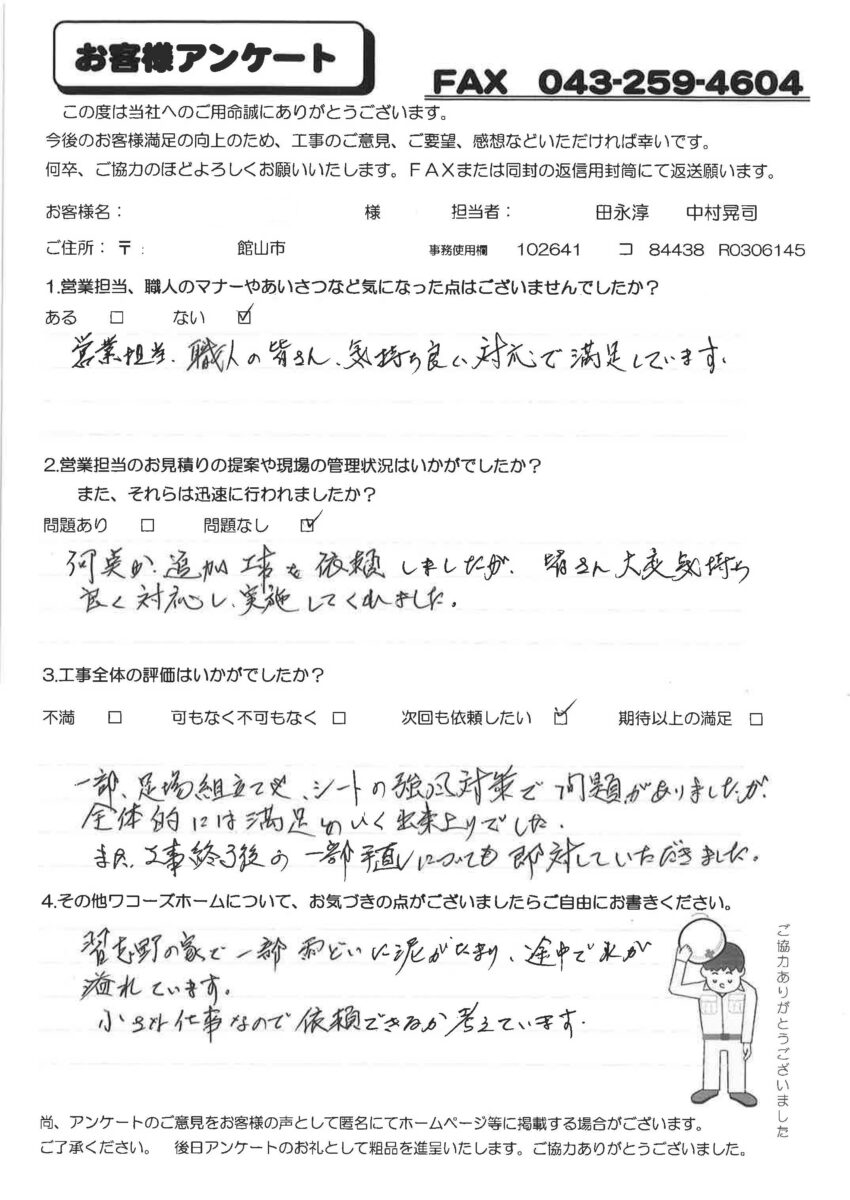 お客様アンケート
FAX 043-259-4604
この度は当社へのご用命誠にありがとうございます。
今後のお客様満足の向上のため、工事のご意見、ご要望、感想などいただければ幸いです。
何卒、ご協力のほどよろしくお願いいたします。FAXまたは同封の返信用封筒にて返送願います。
お客様名： 様 担当者： 田永淳 中村晃司
ご住所：〒： 館山市 事務使用欄 102641 コ 84438 R0306145
1.営業担当、職人のマナーやあいさつなど気になった点はございませんでしたか？
ある □ ない ☑
営業担当、職人の皆さん、気持ち良い対応で満足しています。
2.営業担当のお見積りの提案や現場の管理状況はいかがでしたか？
また、それらは迅速に行われましたか？
問題あり □ 問題なし ☑
何点か、追加工事を依頼しましたが、皆さん大変気持ち
良く対応し、実施してくれました。
3.工事全体の評価はいかがでしたか？
不満 □ 可もなく不可もなく □ 次回も依頼したい ☑ 期待以上の満足 □
一部、足場組立てや、シートの強風対策で問題がありましたが、
全体的には満足のいく出来上りでした。
また、工事終了後の一部手直しについても即対していただきました。
4.その他ワコーズホームについて、お気づきの点がございましたらご自由にお書きください。
習志野の家で一部雨どいに泥がたまり、途中で水が
溢れています。
小さい仕事なので依頼できるか考えています。
ご協力ありがとうございました
尚、アンケートのご意見をお客様の声として匿名にてホームページ等に掲載する場合がございます。
ご了承ください。 後日アンケートのお礼として粗品を進呈いたします。ご協力ありがとうございました。